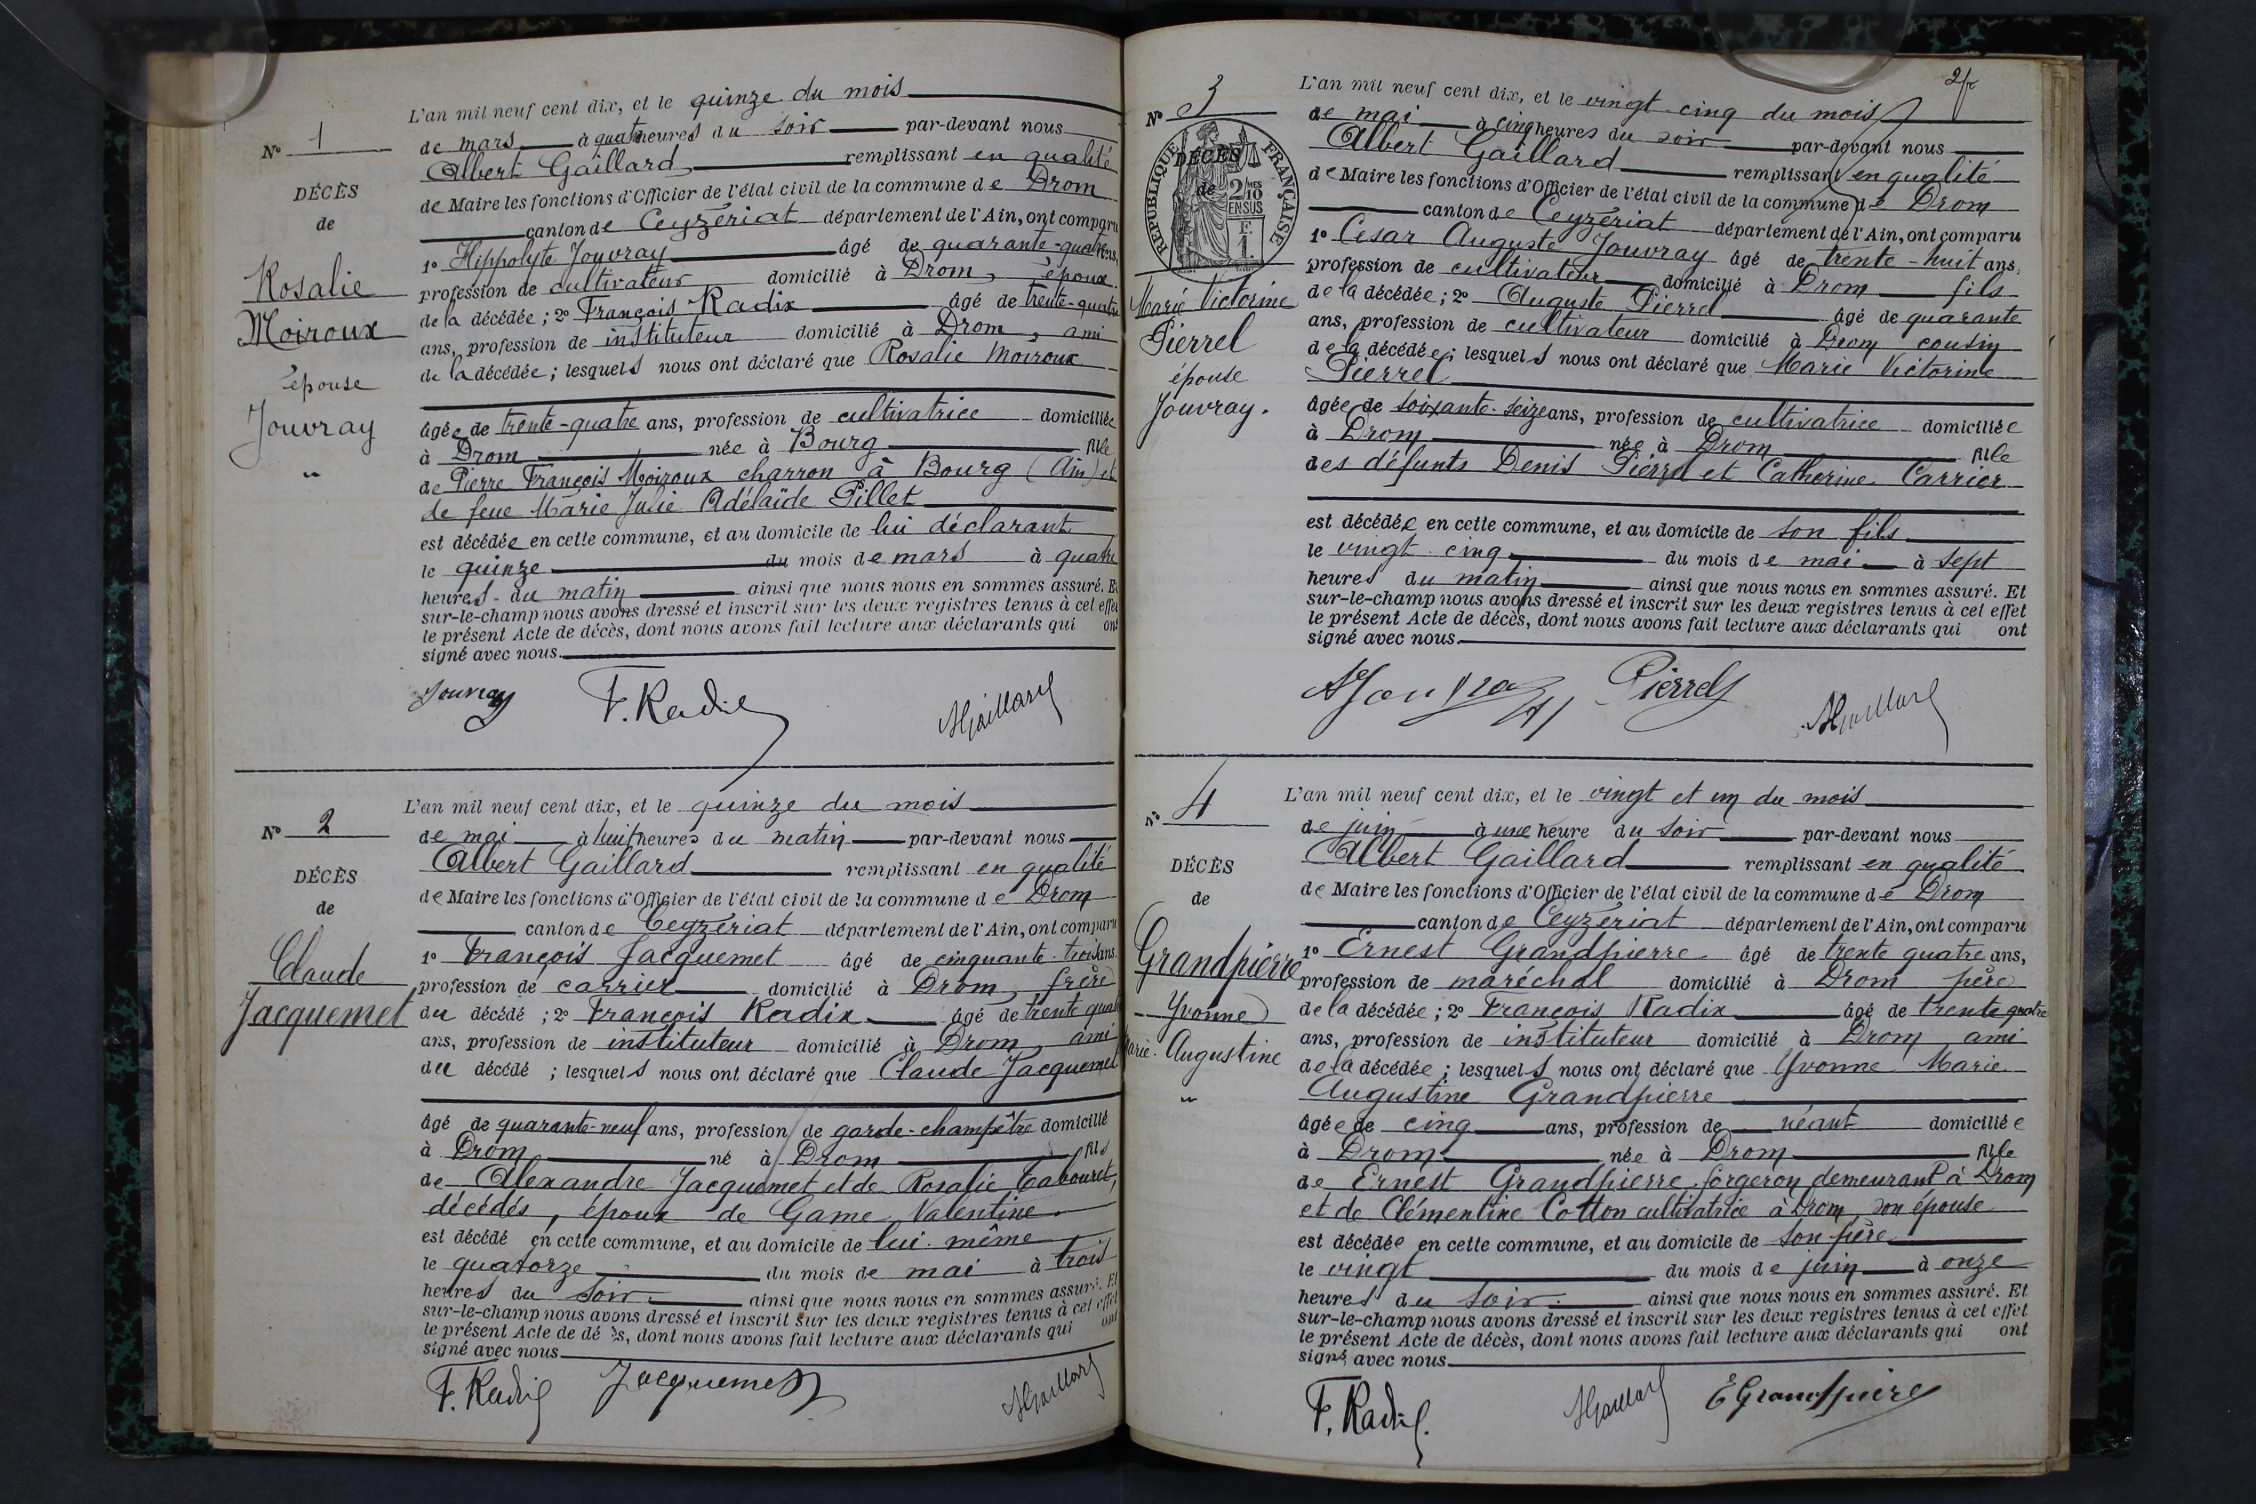 L'an mil neuf cent dix, et le quinze du mois
Nº 1
de mars à quatre heures du soir par-devant nous
Albert Gaillard remplissant en qualité
DÉCÈS
de Maire les fonctions d'Officier de l'état civil de la commune de Drom
de
canton de Ceyzériat département de l'Ain, ont comparu
1º Hippolyte Jouvray âgé de quarante-quatre ans,
Rosalie
profession de cultivateur domicilié à Drom, époux
Moiroux
de la décédée ; 2º François Radix âgé de trente-quatre
ans, profession de instituteur domicilié à Drom, ami
de la décédée ; lesquels nous ont déclaré que Rosalie Moiroux
épouse
Jouvray
âgée de trente-quatre ans, profession de cultivatrice domiciliée
à Drom née à Bourg fille
de Pierre François Moiroux charron à Bourg (Ain) et
de feue Marie Julie Adélaïde Pillet
est décédée en cette commune, et au domicile de lui déclarant
le quinze du mois de mars à quatre
heures du matin ainsi que nous nous en sommes assuré. Et
sur-le-champ nous avons dressé et inscrit sur les deux registres tenus à cet effet
le présent Acte de décès, dont nous avons fait lecture aux déclarants qui ont
signé avec nous.
Jouvray F. Radix AGaillard
L'an mil neuf cent dix, et le quinze du mois
Nº 2
de mai à huit heures du matin par-devant nous
Albert Gaillard remplissant en qualité
DÉCÈS
de Maire les fonctions d'Officier de l'état civil de la commune de Drom
de
canton de Ceyzériat département de l'Ain, ont comparu
1º François Jacquemet âgé de cinquante-trois ans
Claude
profession de carrier domicilié à Drom, frère
Jacquemet
du décédé ; 2º François Radix âgé de trente quatre
ans, profession de instituteur domicilié à Drom, ami
du décédé ; lesquels nous ont déclaré que Claude Jacquemet
âgé de quarante-neuf ans, profession de garde-champêtre domicilié
à Drom né à Drom fils
de Alexandre Jacquemet et de Rosalie Tabouret,
décédés, époux de Game Valentine
est décédé en cette commune, et au domicile de lui-même
le quatorze du mois de mai à trois
heures du soir ainsi que nous nous en sommes assuré. Et
sur-le-champ nous avons dressé et inscrit sur les deux registres tenus à cet effet
le présent Acte de dé ès, dont nous avons fait lecture aux déclarants qui ont
signé avec nous
F. Radix Jacquemet AGaillard
L'an mil neuf cent dix, et le vingt-cinq du mois
Nº 3
de mai à cinq heures du soir par-devant nous
Albert Gaillard remplissant en qualité
DÉCÈS
de
RÉPUBLIQUE FRANÇAISE
2/10 MES
EN SUS
F.
1.
de Maire les fonctions d'Officier de l'état civil de la commune de Drom
canton de Ceyzériat département de l'Ain, ont comparu
1º César Auguste Jouvray âgé de trente-huit ans,
profession de cultivateur domicilié à Drom fils
Marie Victorine
de la décédée ; 2º Auguste Pierrel âgé de quarante
Pierrel
ans, profession de cultivateur domicilié à Drom cousin
de la décédée ; lesquels nous ont déclaré que Marie Victorine
épouse
Pierrel
Jouvray.
âgée de soixante-seize ans, profession de cultivatrice domiciliée
à Drom née à Drom fille
des défunts Denis Pierrel et Catherine Carrier
est décédée en cette commune, et au domicile de son fils
le vingt-cinq du mois de mai à sept
heures du matin ainsi que nous nous en sommes assuré. Et
sur-le-champ nous avons dressé et inscrit sur les deux registres tenus à cet effet
le présent Acte de décès, dont nous avons fait lecture aux déclarants qui ont
signé avec nous.
Jouvray Pierrel AGaillard
L'an mil neuf cent dix, et le vingt et un du mois
Nº 4
de juin à une heure du soir par-devant nous
Albert Gaillard remplissant en qualité
DÉCÈS
de Maire les fonctions d'Officier de l'état civil de la commune de Drom
de
canton de Ceyzériat département de l'Ain, ont comparu
1º Ernest Grandpierre âgé de trente quatre ans,
Grandpierre
profession de maréchal domicilié à Drom père
Yvonne
de la décédée ; 2º François Radix âgé de trente quatre
ans, profession de instituteur domicilié à Drom ami
Marie-Augustine
de la décédée ; lesquels nous ont déclaré que Yvonne Marie
Augustine Grandpierre
âgée de cinq ans, profession de néant domiciliée
à Drom née à Drom fille
de Ernest Grandpierre forgeron demeurant à Drom
et de Clémentine Cotton cultivatrice à Drom, son épouse
est décédée en cette commune, et au domicile de son père
le vingt du mois de juin à onze
heures du soir ainsi que nous nous en sommes assuré. Et
sur-le-champ nous avons dressé et inscrit sur les deux registres tenus à cet effet
le présent Acte de décès, dont nous avons fait lecture aux déclarants qui ont
signé avec nous
F. Radix. AGaillard EGrandpierre